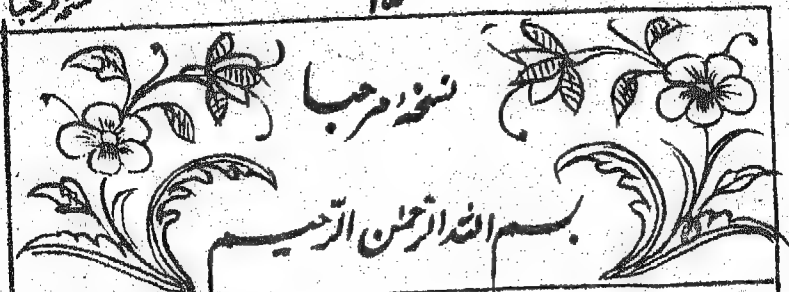 نسخهٔ مرحبا
بسم الله الرّحمٰن الرّحیم